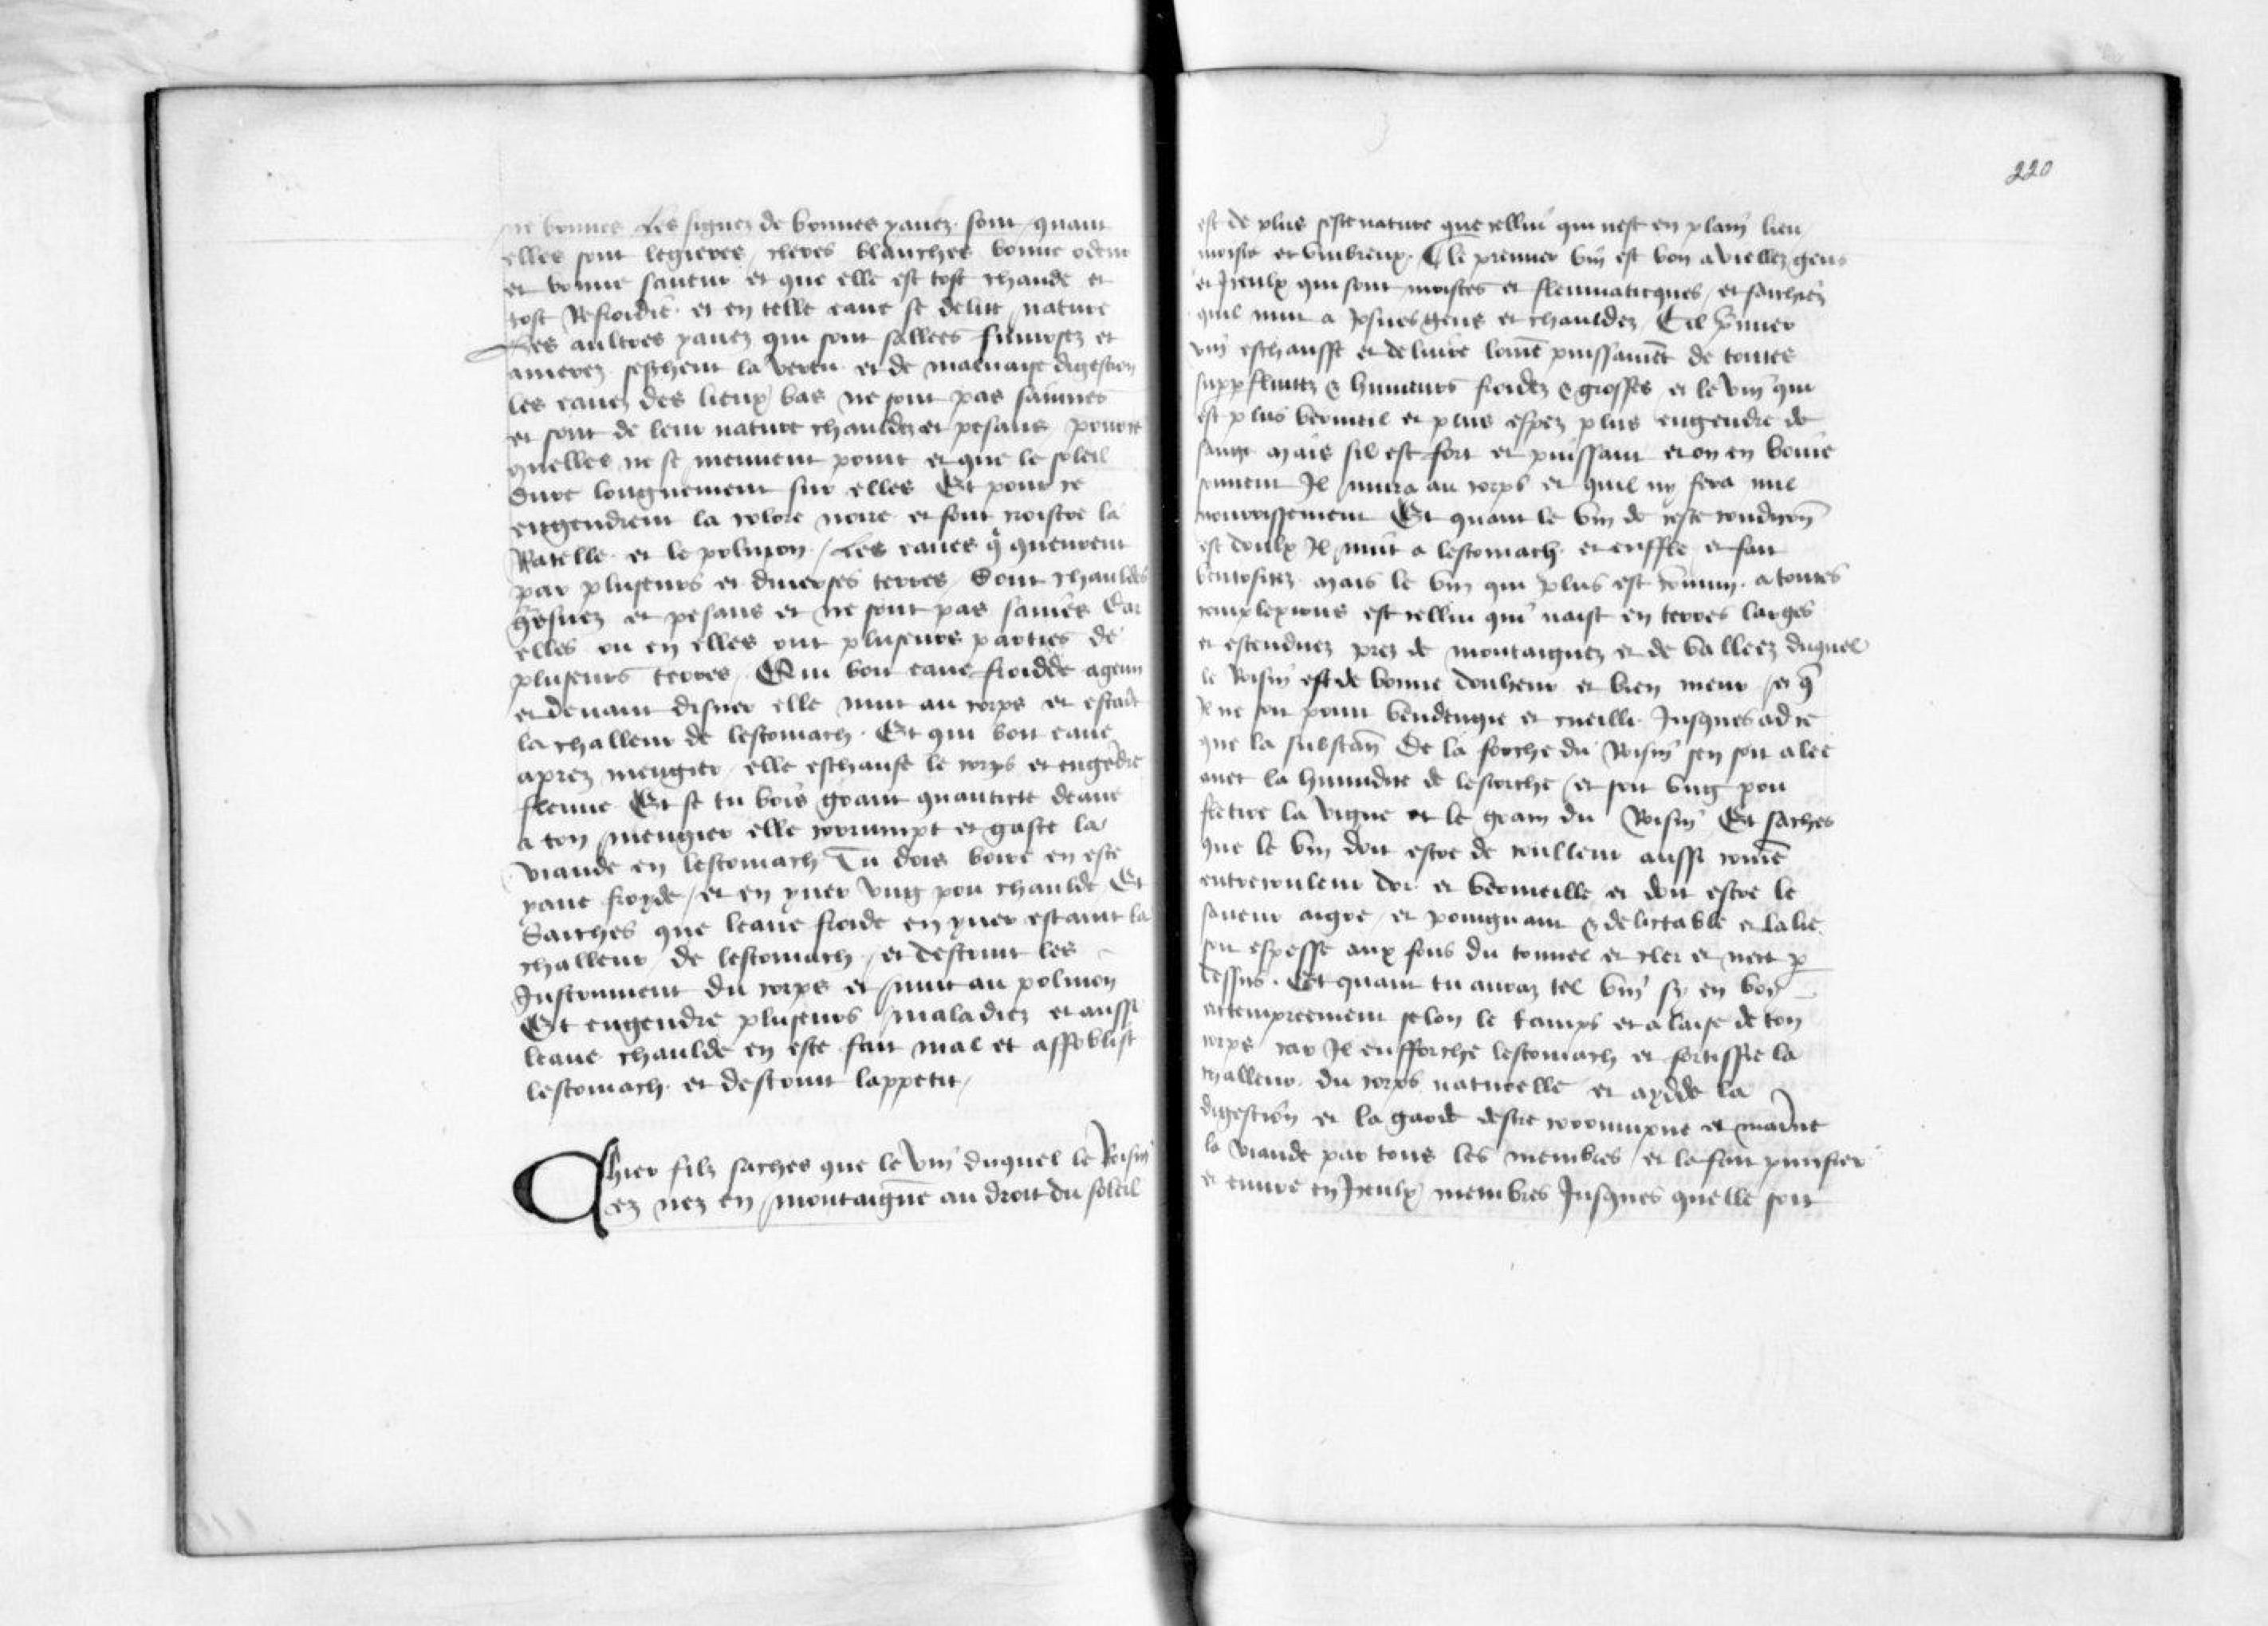 ne bonnes Les signez de bonnes yauez sont quant
elles sont legieres cleres blanches bonne odeur
et bonne saueur et que elle est tost chaude et
tost Refroidie et en telle eaue se delite nature
Les aultres yauez qui sont sallees fumosez et
amerez seschent la vertu et de maluaise digestion
les eauez des lieux bas ne sont pas sainnes
et sont de leur nature chauldez et pesans pource
quelles ne se meuuent point et que le soleil
dure longuement sur elles Et pour ce
engendrent la colore noire et font croistre la
Ratelle et le polmon / Les eaues q̃ queurent
par pluseurs et diuerses terres Sont chauldes
et pesans et ne sont pas sainës Car
elles ou en elles ont pluseurs parties de
pluseurs terres / Qui boit eaue froidde a geun
et deuant disner elle nuit au corps et estaît
la challeur de lestomach Et qui boit eaue
aprez mengier elle eschaufe le corps et engẽdre
fleume Et se tu bois grant quantite deaue
a ton mengier elle corrumpt et gaste la
viande en lestomach Tu dois boire en este
yaue froyde / et en yuer vng pou chaulde Et
Saiches que leaue froide en yuer estaint la
challeur de lestomach et destruit les
Instrument du corps et nuit au polmon
Et engendre pluseurs maladiez et aussi
leaue chaulde en este fait mal et affoblist
lestomach et destruit lappetit /
Chier filz saches que le vin duquel le Roisin
ez nez en montaigne au droit du soleil
220
est de plus seche nature que cellui qui nest en plain lieu
moiste et vmbreux Cle premier vin est bon a viellez gens
et Jceulx qui sont moistes et fleumaticques / et saichiez
quil nuit a Josnes gens et chauldez Cil p̃mier
vin eschauffe et deliure lomẽ puissamẽt de toutes
supp fluitez & humeurs froidez & grosses et le vin qui
est plus vermeil et plus espez plus engendre de
sangc mais sil est fort et puissant et on en boiue
souuent Il nuira au corps et quil ny fera nul
nourrissement Et quant le vin de ceste condicion
est doulx Il nuit a lestomach et enffle et fait
ventositez mais le vin qui plus est cõmun a toutes
complexions est cellui qui naist en terres larges
et estenduez prez de montaignez et de valleez duquel
le Roisin est de bonne doulheur et bien meur / et q̃
Il ne soit point vendengie et cueilli Jusques ad ce
que la substan̄ De la forche du Roisin sen soit alee
auec la humidite de lescorche / et soit vng pou
fletrie la vigne et le grain du Roisin Et saches
que le vin doit estre de coulleur aussi comẽ
entrecouleur dor et vermeille et doit estre le
saueur aigre / et poingnant & delictable et la lie
soit espesse aux fons du tonnel et cler et nect p
dessus . Et quant tu auraz tel vin sy en boy
attempreement selon le tamps et a laise de ton
corps car Il enfforche lestomach et fortiffie la
challeur du corps naturelle et aydde la
digestion et la garde destre corrumpue et mainne
la viande par tous les membres / et le fait purifier
et cuire en Jceulx membres Jusques quelle soit